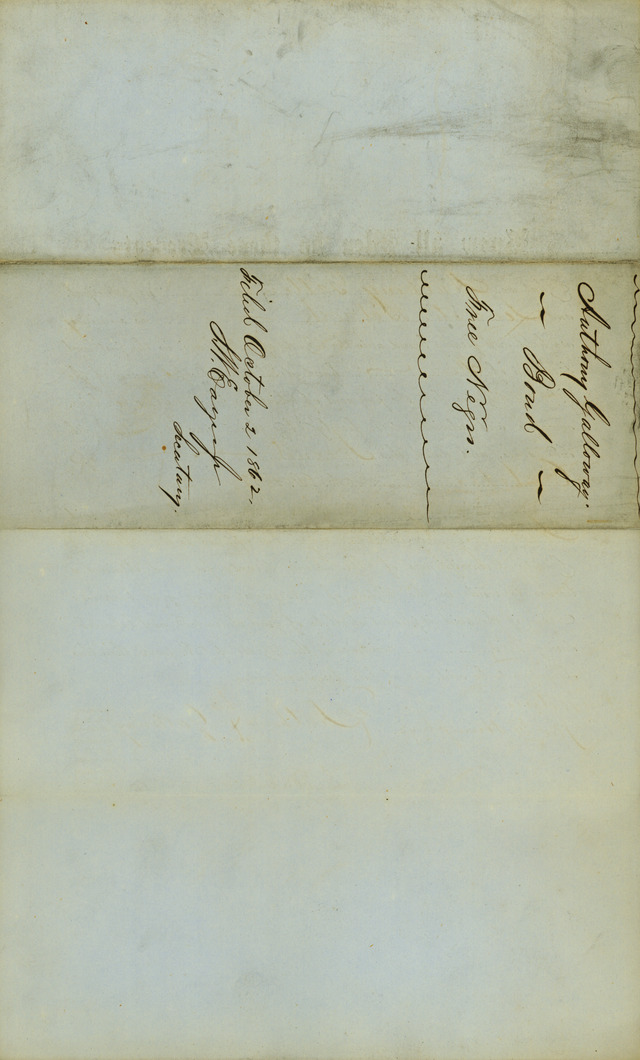 Anthony Galloway.
~ Bond ~
Free Negro.
Filed October 2 1862.